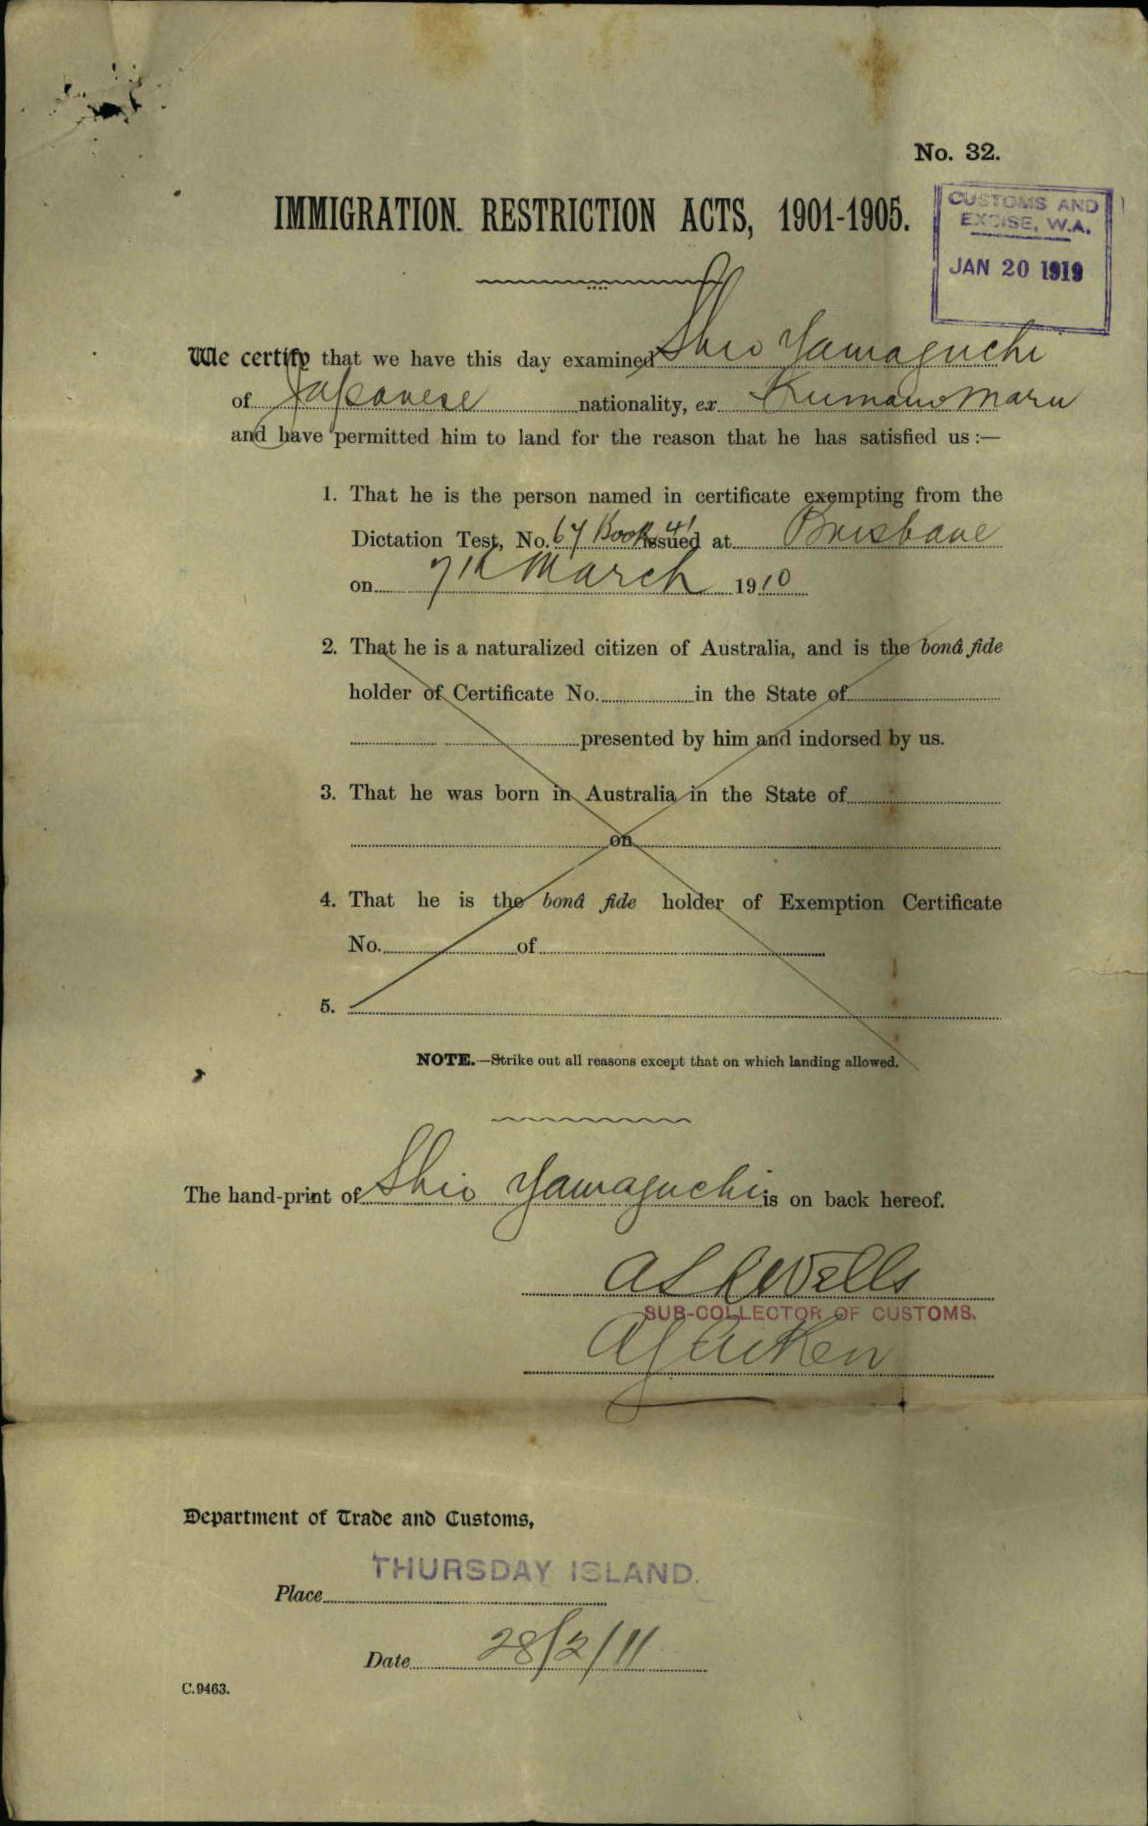 No. 32.
IMMIGRATION RESTRICTION ACTS, 1901-1905.
CUSTOMS AND
EXCISE, W.A.
JAN 20 1919
We certify that we have this day examined Shio Yamaguchi
of Japanese nationality, ex Kumano Maru
and have permitted him to land for the reason that he has satisfied us :—
1. That he is the person named in certificate exempting from the
Dictation Test, No. 67 Book 41 issued at Brisbane
on 7th March 1910
2. That he is a naturalized citizen of Australia, and is the bonâ fide
holder of Certificate No. in the State of
presented by him and indorsed by us.
3. That he was born in Australia in the State of
on
4. That he is the bonâ fide holder of Exemption Certificate
No. of
5.
NOTE.—Strike out all reasons except that on which landing allowed.
The hand-print of Shio Yamaguchi is on back hereof.
Wells
SUB-COLLECTOR OF CUSTOMS.
Aitken
Department of Trade and Customs,
THURSDAY ISLAND.
Place
Date 28/2/11
C.9463.